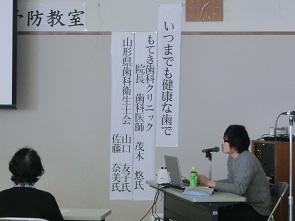 予防教室
いつまでも健康な歯で
もてき歯科クリニック
院長 歯科医師 茂木 悠氏
山形県歯科衛生士会 山口 友子氏
佐藤 奈美氏